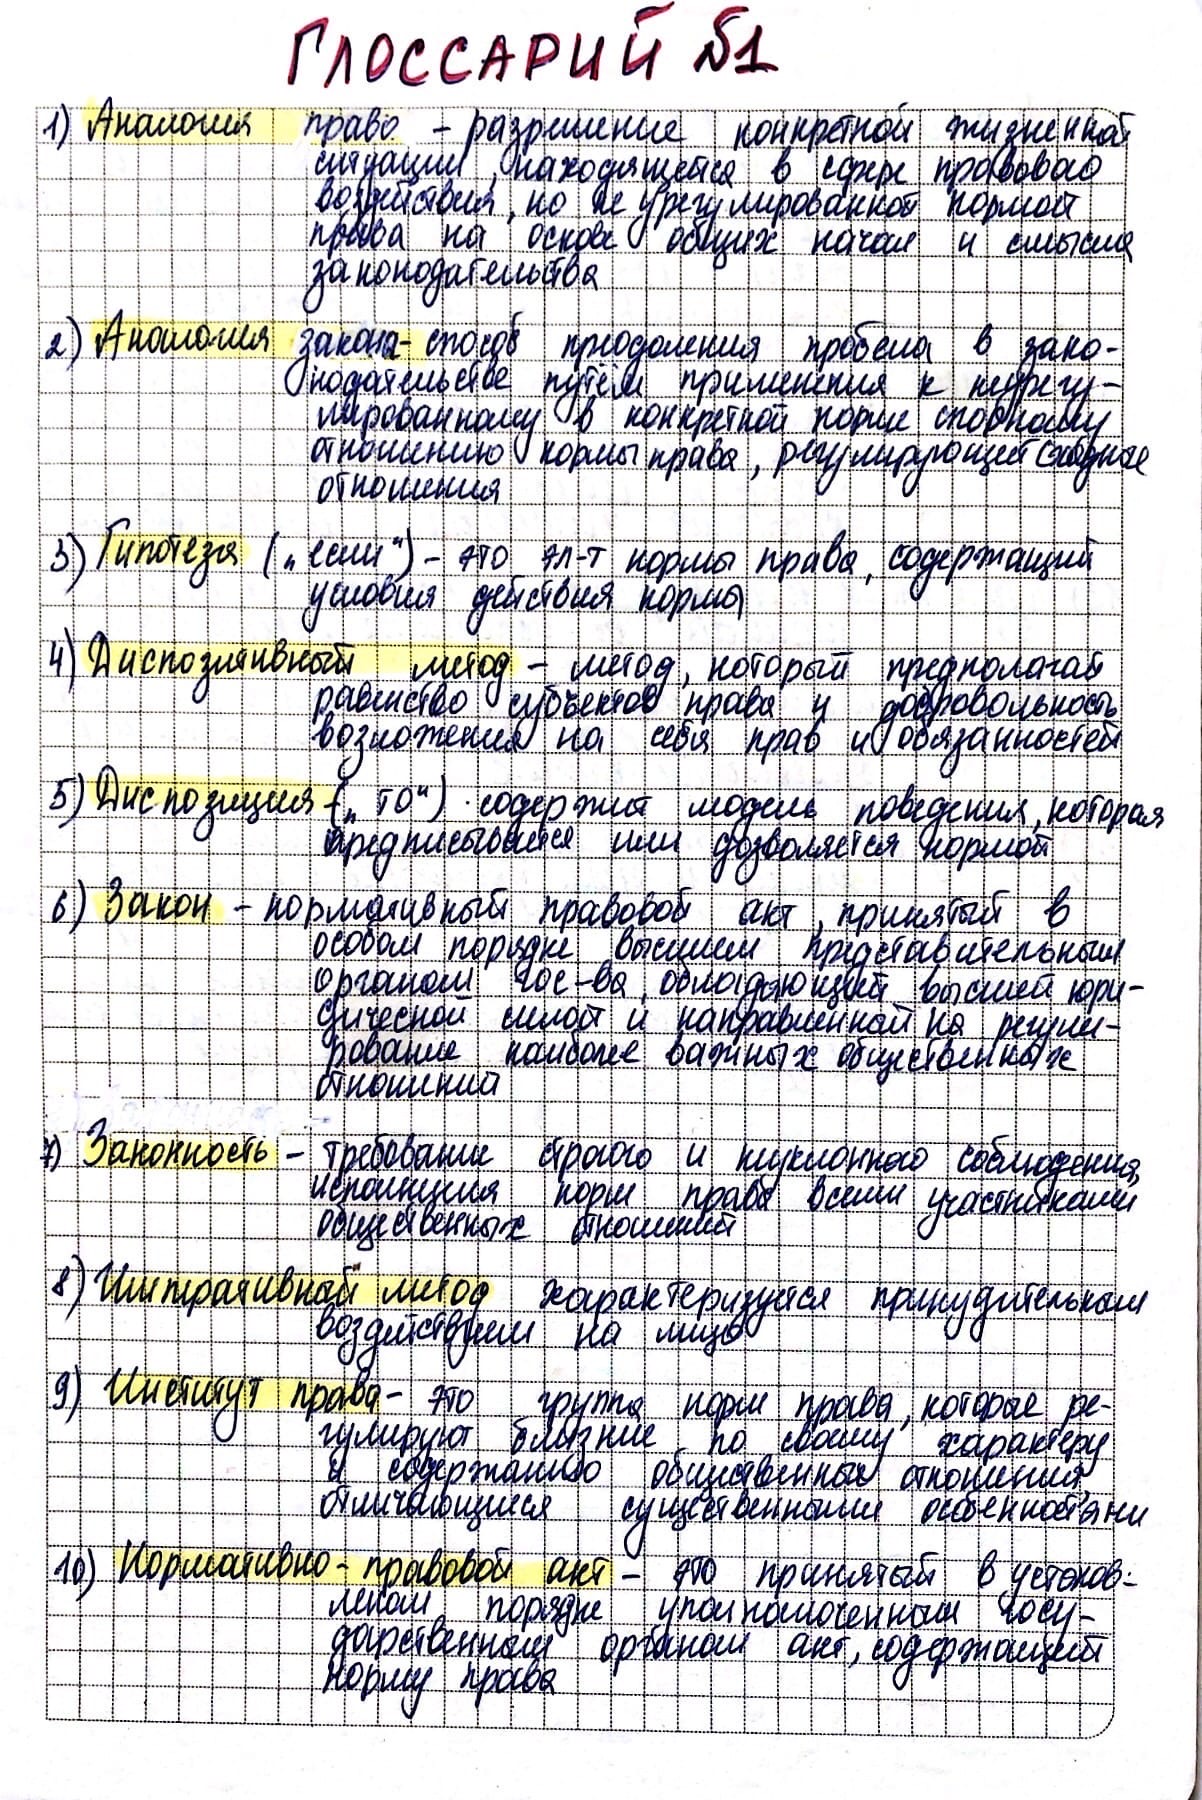 ГЛОССАРИЙ №1
1) Аналогия право – разрешение конкретной жизненной
ситуации, находящейся в сфере правового
воздействия, но не урегулированной нормой
права на основе общих начал и смысла
законодательства
2) Аналогия закона – способ преодоления пробела в зако-
нодательстве путём применения к неурегу-
лированному в конкретной норме спорному
отношению нормы права, регулирующей сходные
отношения
3) Гипотеза („если“) – это эл-т нормы права, содержащий
условия действия нормы
4) Диспозитивный метод – метод, который предполагает
равенство субъектов права и добровольность
возложения на себя прав и обязанностей
5) Диспозиция – („то“) содержит модель поведения, которая
предписывается или дозволяется нормой
6) Закон – нормативный правовой акт, принятый в
особом порядке высшим представительным
органом гос-ва, обладающий высшей юри-
дической силой и направленной на регули-
рование наиболее важных общественных
отношений
7) Законность – требование строгого и неуклонного соблюдения,
исполнения норм права всеми участниками
общественных отношений
8) Императивный метод характеризуется принудительным
воздействием на лицо
9) Институт права – это группа норм права, которые ре-
гулируют близкие по своему характеру
и содержанию общественные отношения,
отличающиеся существенными особенностями
10) Нормативно-правовой акт – это принятый в установ-
леном порядке уполномоченным госу-
дарственным органом акт, содержащий
норму права